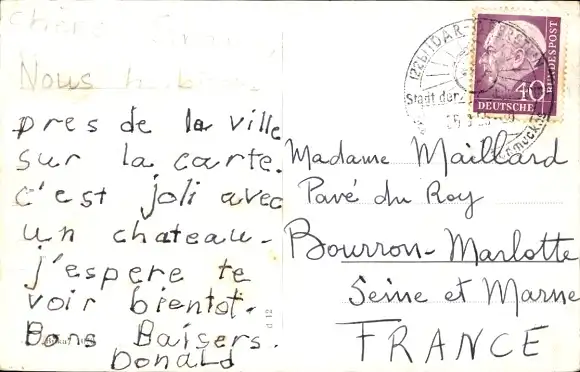 Nous
pres de la ville
sur la carte.
c'est joli avec
un chateau-
j'espere te
voir bientot.
Bons Baisers.
Donald
(22b) IDAR-OBERSTEIN
Stadt der
40
DEUTSCHE
BUNDESPOST
Madame Maillard
Pavé du Roy
Bourron-Marlotte
Seine et Marne
FRANCE